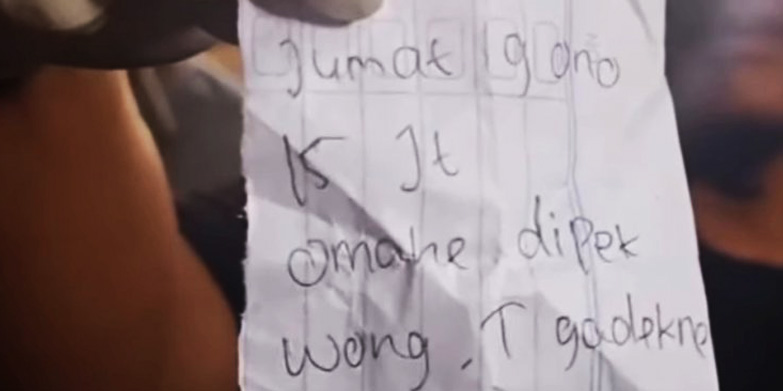 Jumat gono
15 Jt
omahe dipek
wong, T gadekne